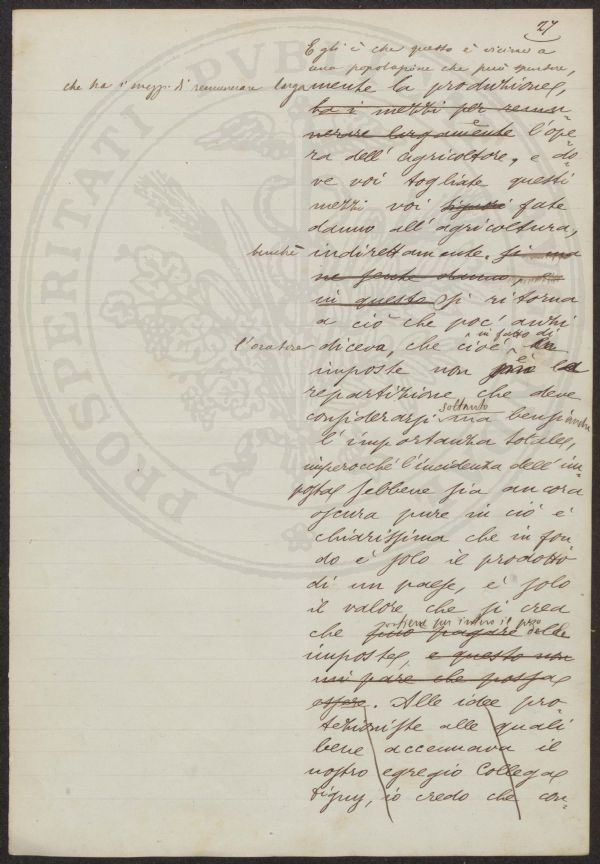 27
Egli è che questo è vicino a
una popolazione che può spendere,
che ha i mezzi di remunerare largamente la produzione,
ha i mezzi per remu-
nerare largamente l'ope-
ra dell'agricoltore, e do-
ve voi togliate questi
mezzi voi fate
danno all'agricoltura,
benchè indirettamente. Si ma
ne sente danno, e
in questo si ritorna
a ciò che poc'anzi
l'oratore diceva, che cioè in fatto di
imposte non è la
repartizione che deve
considerarsi soltanto ma bensì
l'importanza totale,
imperocchè l'incidenza dell'im-
posta sebbene sia ancora
oscura pure in ciò è
chiarissima che in fon-
do è solo il prodotto
di un paese, e' solo
il valore che si crea
che sostiene per intero il peso può pagare delle
imposte, e questo non
mi pare che possa
essere. Alle idee pro-
tezioniste alle quali
bene accennava il
nostro egregio Collega
Tigny, io credo che con-
PROSPERITATI PUBL